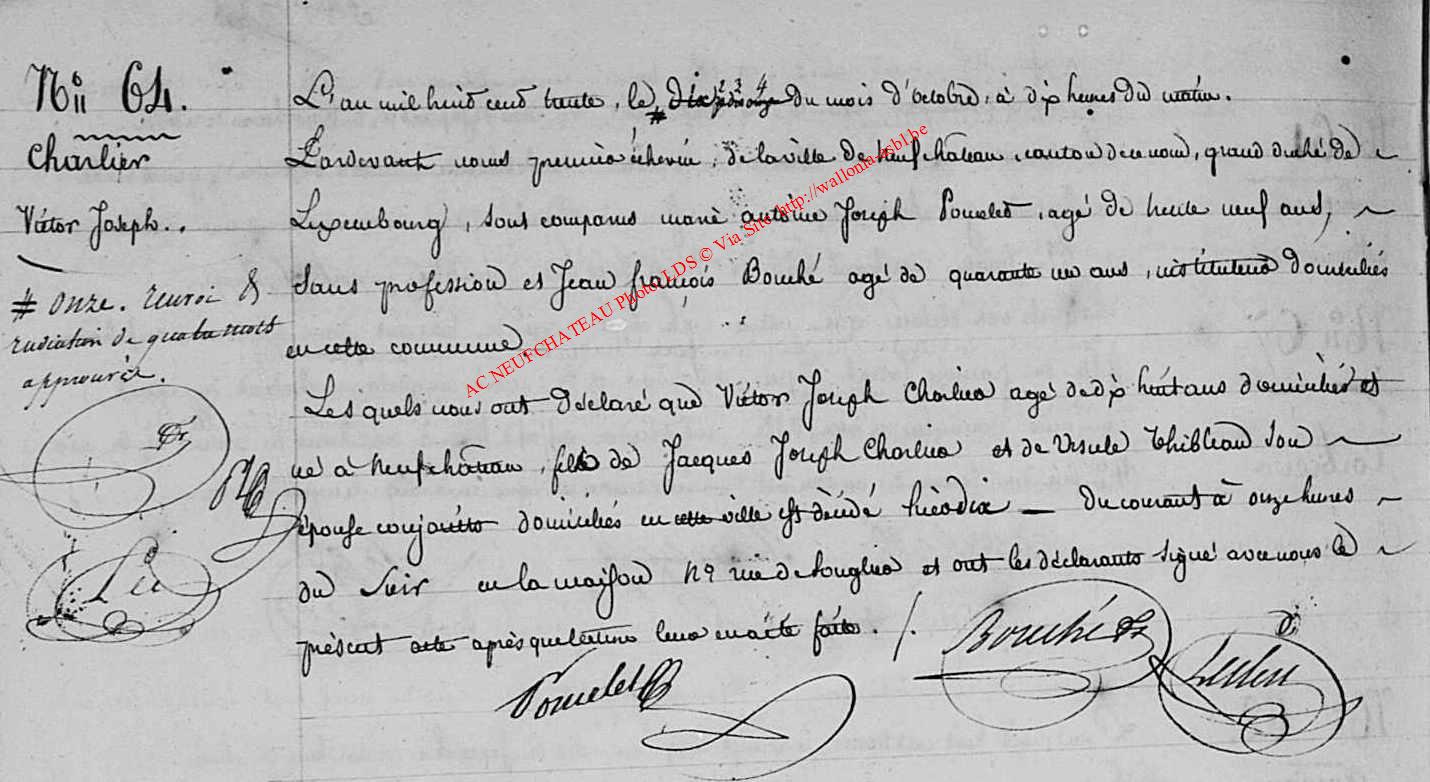 N° 64.
Charlier
Victor Joseph..
# onze. renvoi &
radiation de quatre mots
approuvés.
L'an mil huit cent trente, le # du mois d'octobre, à dix heures du matin.
Pardevant nous premier échevin, de la ville de Neufchateau, canton de ce nom, grand duché de
Luxembourg, sont comparus Antoine Joseph Poncelet, agé de trente neuf ans,
sans profession et Jean françois Bouché agé de quarante un ans, instituteur domiciliés
en cette commune.
Les quels nous ont déclaré que Victor Joseph Charlier agé de dix huit ans domicilié et
né à Neufchateau, fils de Jacques Joseph Charlier et de Ursule Thibleau son
épouse conjoints domiciliés en cette ville est décédé hier dix — du courant à onze heures
du soir en la maison N° rue de et ont les déclarants signé avec nous le
présent acte après que lecture leur en a été faite. /.
Poncelet Bouché
AC NEUFCHATEAU Photo LDS © Via Site http://wallonia-asbl.be